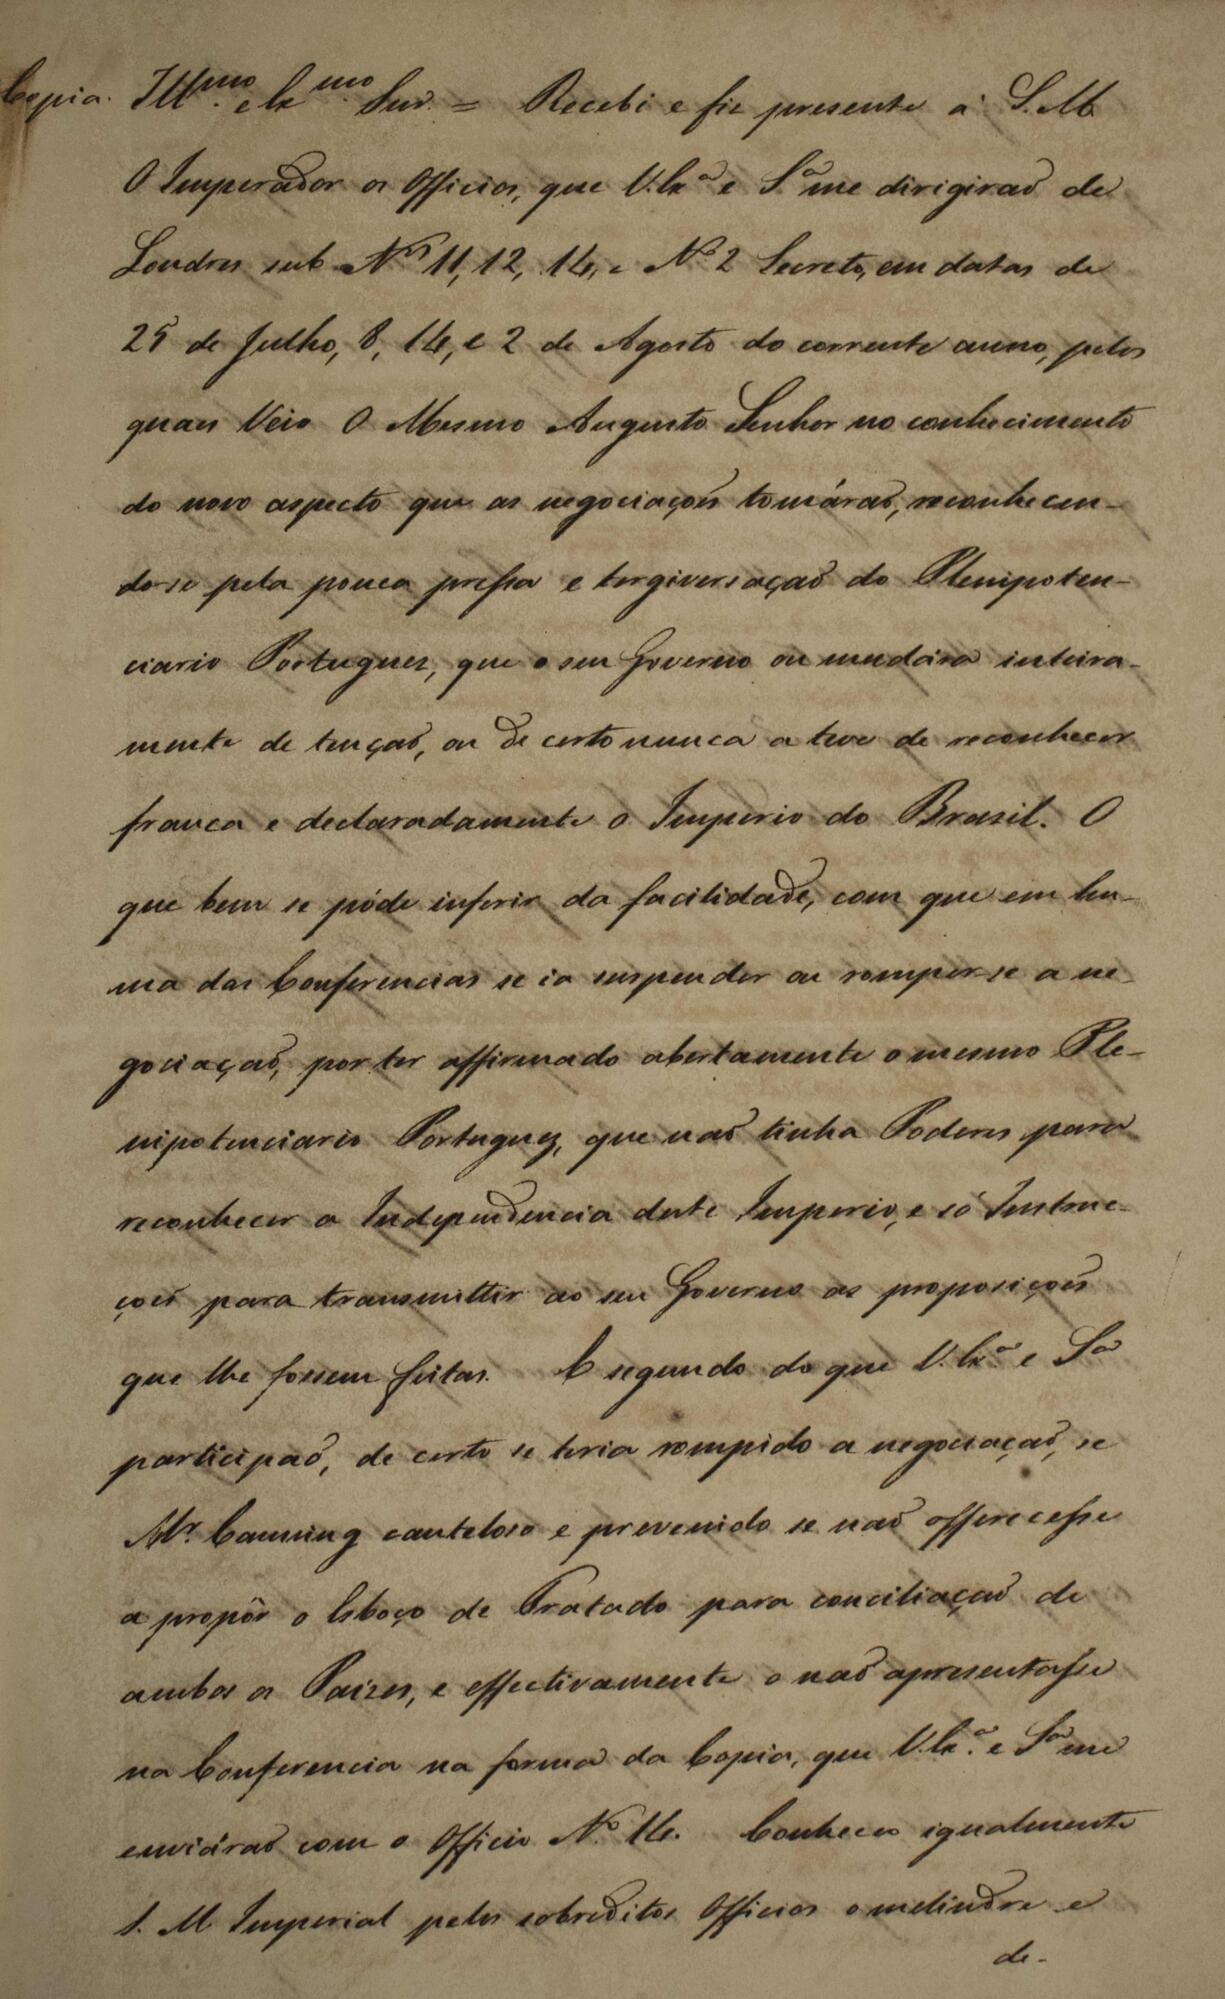 Copia. Ill.mo e Ex.mo Snr. = Recebi e fiz presente a S. M.
O Imperador os Officios, que V. Ex.a e S.a me dirigiraõ de
Londres sub N.os 11, 12, 14, e N.o 2 Secreto, em datas de
25 de Julho, 8, 14, e 2 de Agosto do corrente anno, pelos
quaes Veio O Mesmo Augusto Senhor no conhecimento
do novo aspecto que as negociaçoẽs tomáraõ, reconhecen-
do-se pela pouca pressa e tergiversaçaõ do Plenipoten-
ciario Portuguez, que o seu Governo ou mudára inteira-
mente de tençaõ, ou de certo nunca a teve de reconhecer
franca e declaradamente o Imperio do Brasil. O
que bem se póde inferir da facilidade, com que em hu-
ma das Conferencias se ia suspender ou romper-se a ne-
gociaçaõ, por ter affirmado abertamente o mesmo Ple-
nipotenciario Portuguez, que naõ tinha Poderes para
reconhecer a Independencia deste Imperio, e só Instruc-
çoẽs para transmittir ao seu Governo as proposiçoẽs
que lhe fossem feitas. E segundo do que V. Ex.a e S.a
participaõ, de certo se teria rompido a negociaçaõ, se
Mr. Canning cauteloso e prevenido se naõ offerecesse
a propôr o Esboço de Tratado para conciliaçaõ de
ambos os Paizes, e effectivamente o naõ apresentasse
na Conferencia na forma da Copia, que V. Ex.a e S.a me
enviáraõ com o Officio N.o 14. Conheceo igualmente
S. M. Imperial pelos sobreditos Officios o melindre e
de-